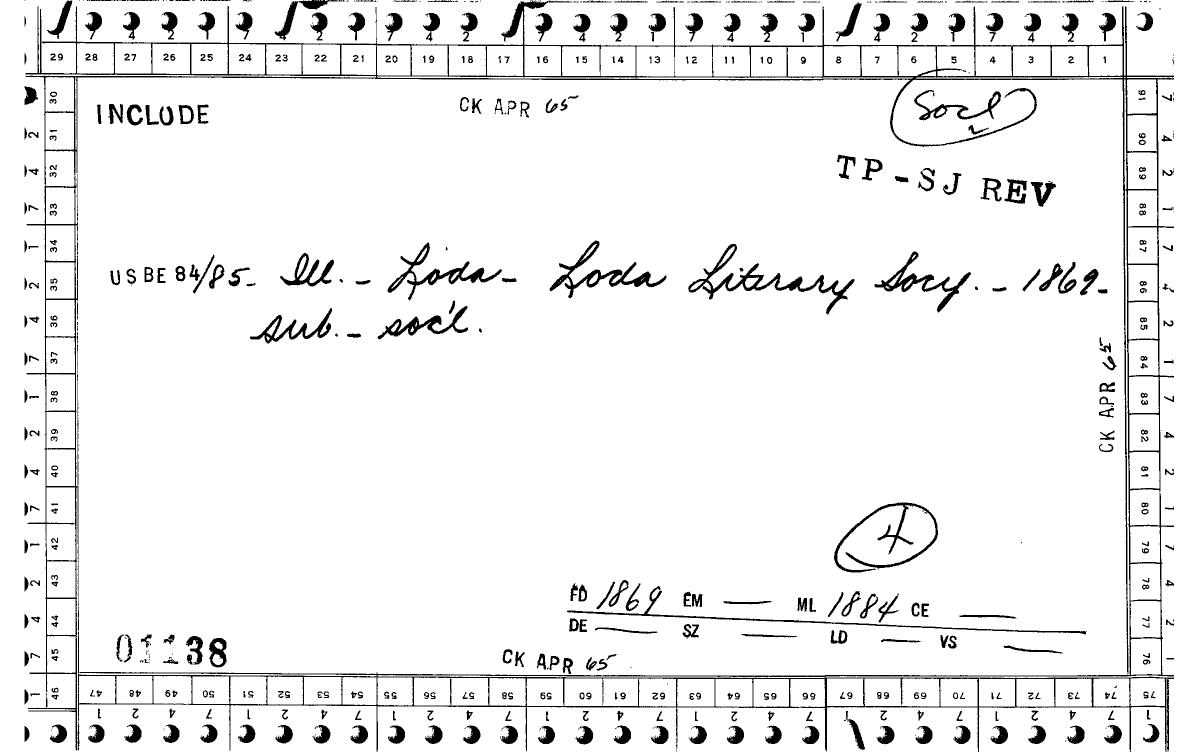 7 4 2 1 7 4 2 1 7 4 2 1 7 4 2 1 7 4 2 1 7 4 2 1 7 4 2 1
29 28 27 26 25 24 23 22 21 20 19 18 17 16 15 14 13 12 11 10 9 8 7 6 5 4 3 2 1
INCLUDE CK APR 65 Socl
TP-SJ REV
USBE 84/85- Ill. - Loda - Loda Literary Socy. - 1869-
sub. - soc'l.
CK APR 65
4
FD 1869 EM — ML 1884 CE —
DE — SZ — LD — VS —
01138
CK APR 65
30 31 32 33 34 35 36 37 38 39 40 41 42 43 44 45 46
91 90 89 88 87 86 85 84 83 82 81 80 79 78 77 76 75
47 48 49 50 51 52 53 54 55 56 57 58 59 60 61 62 63 64 65 66 67 68 69 70 71 72 73 74 75
1 2 4 7 1 2 4 7 1 2 4 7 1 2 4 7 1 2 4 7 1 2 4 7 1 2 4 7 1